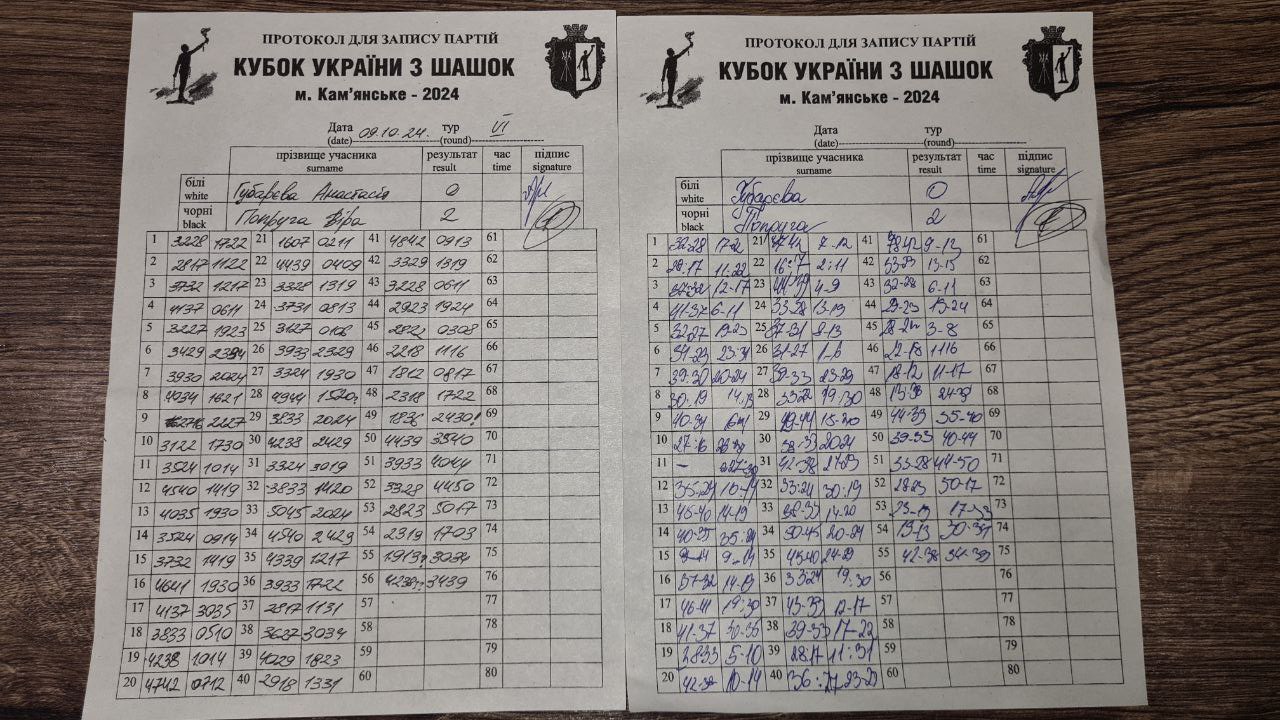 ПРОТОКОЛ ДЛЯ ЗАПИСУ ПАРТІЙ
КУБОК УКРАЇНИ З ШАШОК
м. Кам'янське - 2024
Дата 09.10.24. тур VI
(date) (round)
прізвище учасника результат час підпис
surname result time signature
білі Губарєва Анастасія 0
white
чорні Попруга Віра 2
black
1 3228 1722 21 1607 0211 41 4842 0913 61
2 2817 1122 22 4439 0409 42 3329 1319 62
3 3732 1217 23 3328 1319 43 3228 0611 63
4 4137 0611 24 3731 0813 44 2923 1924 64
5 3227 1923 25 3127 0108 45 2822 0308 65
6 3429 26 3933 2329 46 2218 1116 66
7 3930 2024 27 3324 1930 47 1812 0817 67
8 4034 1621 28 4944 1520 48 2318 1722 68
9 2227 29 3833 2024 49 1836 2430! 69
10 3122 1730 30 4238 2429 50 4439 3540 70
11 3524 1014 31 3324 3019 51 3933 4044 71
12 4540 1419 32 3833 1420 52 3328 4450 72
13 4035 1930 33 5045 2024 53 2823 5017 73
14 3524 0914 34 4540 2429 54 2319 1703 74
15 3732 1419 35 4339 1217 55 1913? 3034 75
16 4641 1930 36 3933 1722 56 4238 3439 76
17 4137 3035 37 2817 1131 57 77
18 3833 0510 38 3627 3034 58 78
19 4238 1014 39 4029 1823 59 79
20 4742 0712 40 2918 1331 60 80
ПРОТОКОЛ ДЛЯ ЗАПИСУ ПАРТІЙ
КУБОК УКРАЇНИ З ШАШОК
м. Кам'янське - 2024
Дата тур
(date) (round)
прізвище учасника результат час підпис
surname result time signature
білі Губарєва 0
white
чорні Попруга 2
black
1 32-28 21 7-12 41 48-42 9-13 61
2 28-17 11-22 22 16:7 2:11 42 62
3 12-17 23 4-9 43 32-28 6-11 63
4 41-37 6-11 24 13-19 44 29-23 19-24 64
5 32-27 19-23 25 37-31 8-13 45 3-8 65
6 26 31-27 1-8 46 22-18 1116 66
7 39:30 20-24 27 23-29 47 18-12 11-17 67
8 30:19 28 19:30 48 68
9 40-34 29 15-20 49 44-39 35-40 69
10 30 2024 50 39-33 40-44 70
11 - 31 42-38 51 33-28 44-50 71
12 35:24 32 33:24 30:19 52 2823 50-17 72
13 45-40 14-19 33 38-33 14-20 53 73
14 40-35 34 50-45 20-24 54 19-13 74
15 9-14 35 4540 24-29 55 42-38 34-39 75
16 37-32 14-19 36 33:24 19:30 56 76
17 46-41 19:30 37 43-39 12-17 57 77
18 41-37 30-35 38 39-33 17-22 58 78
19 5-10 39 28:17 11:31 59 79
20 10-14 40 36:27 60 80